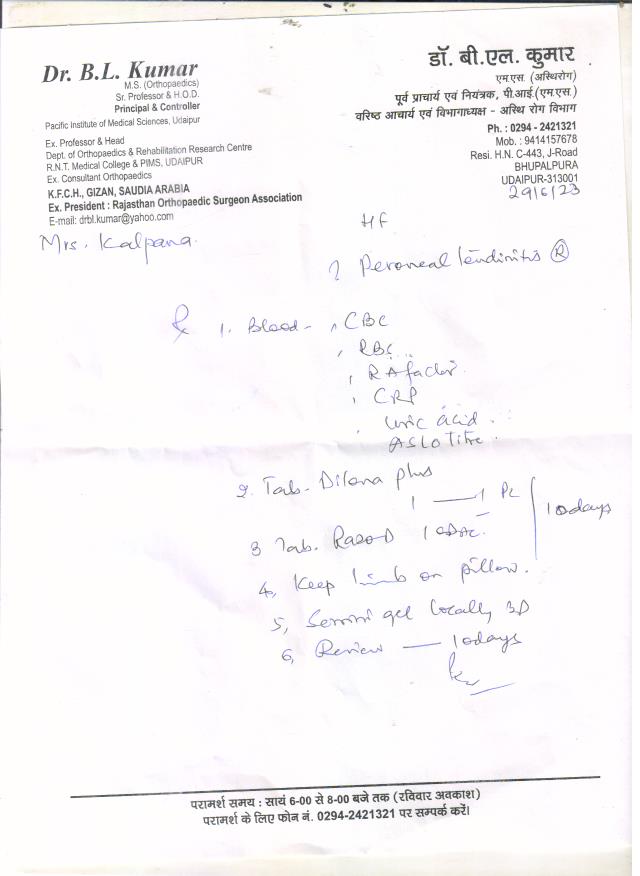 Dr. B.L. Kumar
M.S. (Orthopaedics)
Sr. Professor & H.O.D.
Principal & Controller
Pacific Institute of Medical Sciences, Udaipur
Ex. Professor & Head
Dept. of Orthopaedics & Rehabilitation Research Centre
R.N.T. Medical College & PIMS, UDAIPUR
Ex. Consultant Orthopaedics
K.F.C.H., GIZAN, SAUDIA ARABIA
Ex. President : Rajasthan Orthopaedic Surgeon Association
E-mail: drbl.kumar@yahoo.com
डॉ. बी.एल. कुमार
एम.एस. (अस्थिरोग)
पूर्व प्राचार्य एवं नियंत्रक, पी.आई.(एम.एस.)
वरिष्ठ आचार्य एवं विभागाध्यक्ष - अस्थि रोग विभाग
Ph. : 0294 - 2421321
Mob. : 9414157678
Resi. H.N. C-443, J-Road
BHUPALPURA
UDAIPUR-313001
29/6/23
Mrs. Kalpana.
HF
? Peroneal tendinitis (R)
Rx 1. Blood - , CBC
, RBC
, RA factor.
, CRP
, Uric acid.
ASLO Titre.
2. Tab- Dilona plus
1 — 1 PC
10 days
3 Tab. Razo D 1 OD AC.
4, Keep limb on pillow.
5, gel locally 3D
6, Review — 10 days
परामर्श समय : सायं 6-00 से 8-00 बजे तक (रविवार अवकाश)
परामर्श के लिए फोन नं. 0294-2421321 पर सम्पर्क करें।